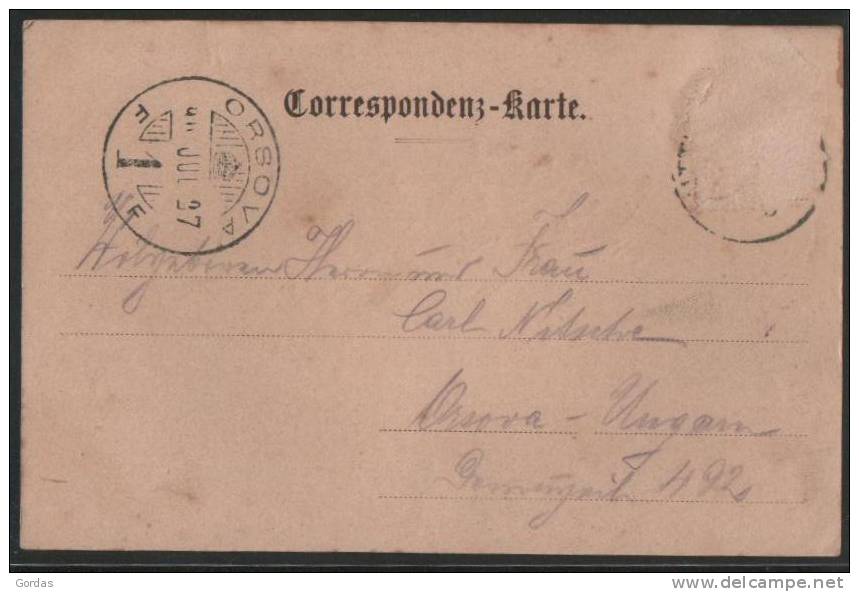 Correspondenz-Karte.
ORSOVA
JUL 97
1
Herrn und Frau
Carl Nitsche
Orsova - Ungarn
492
Gordas
delcampe.net